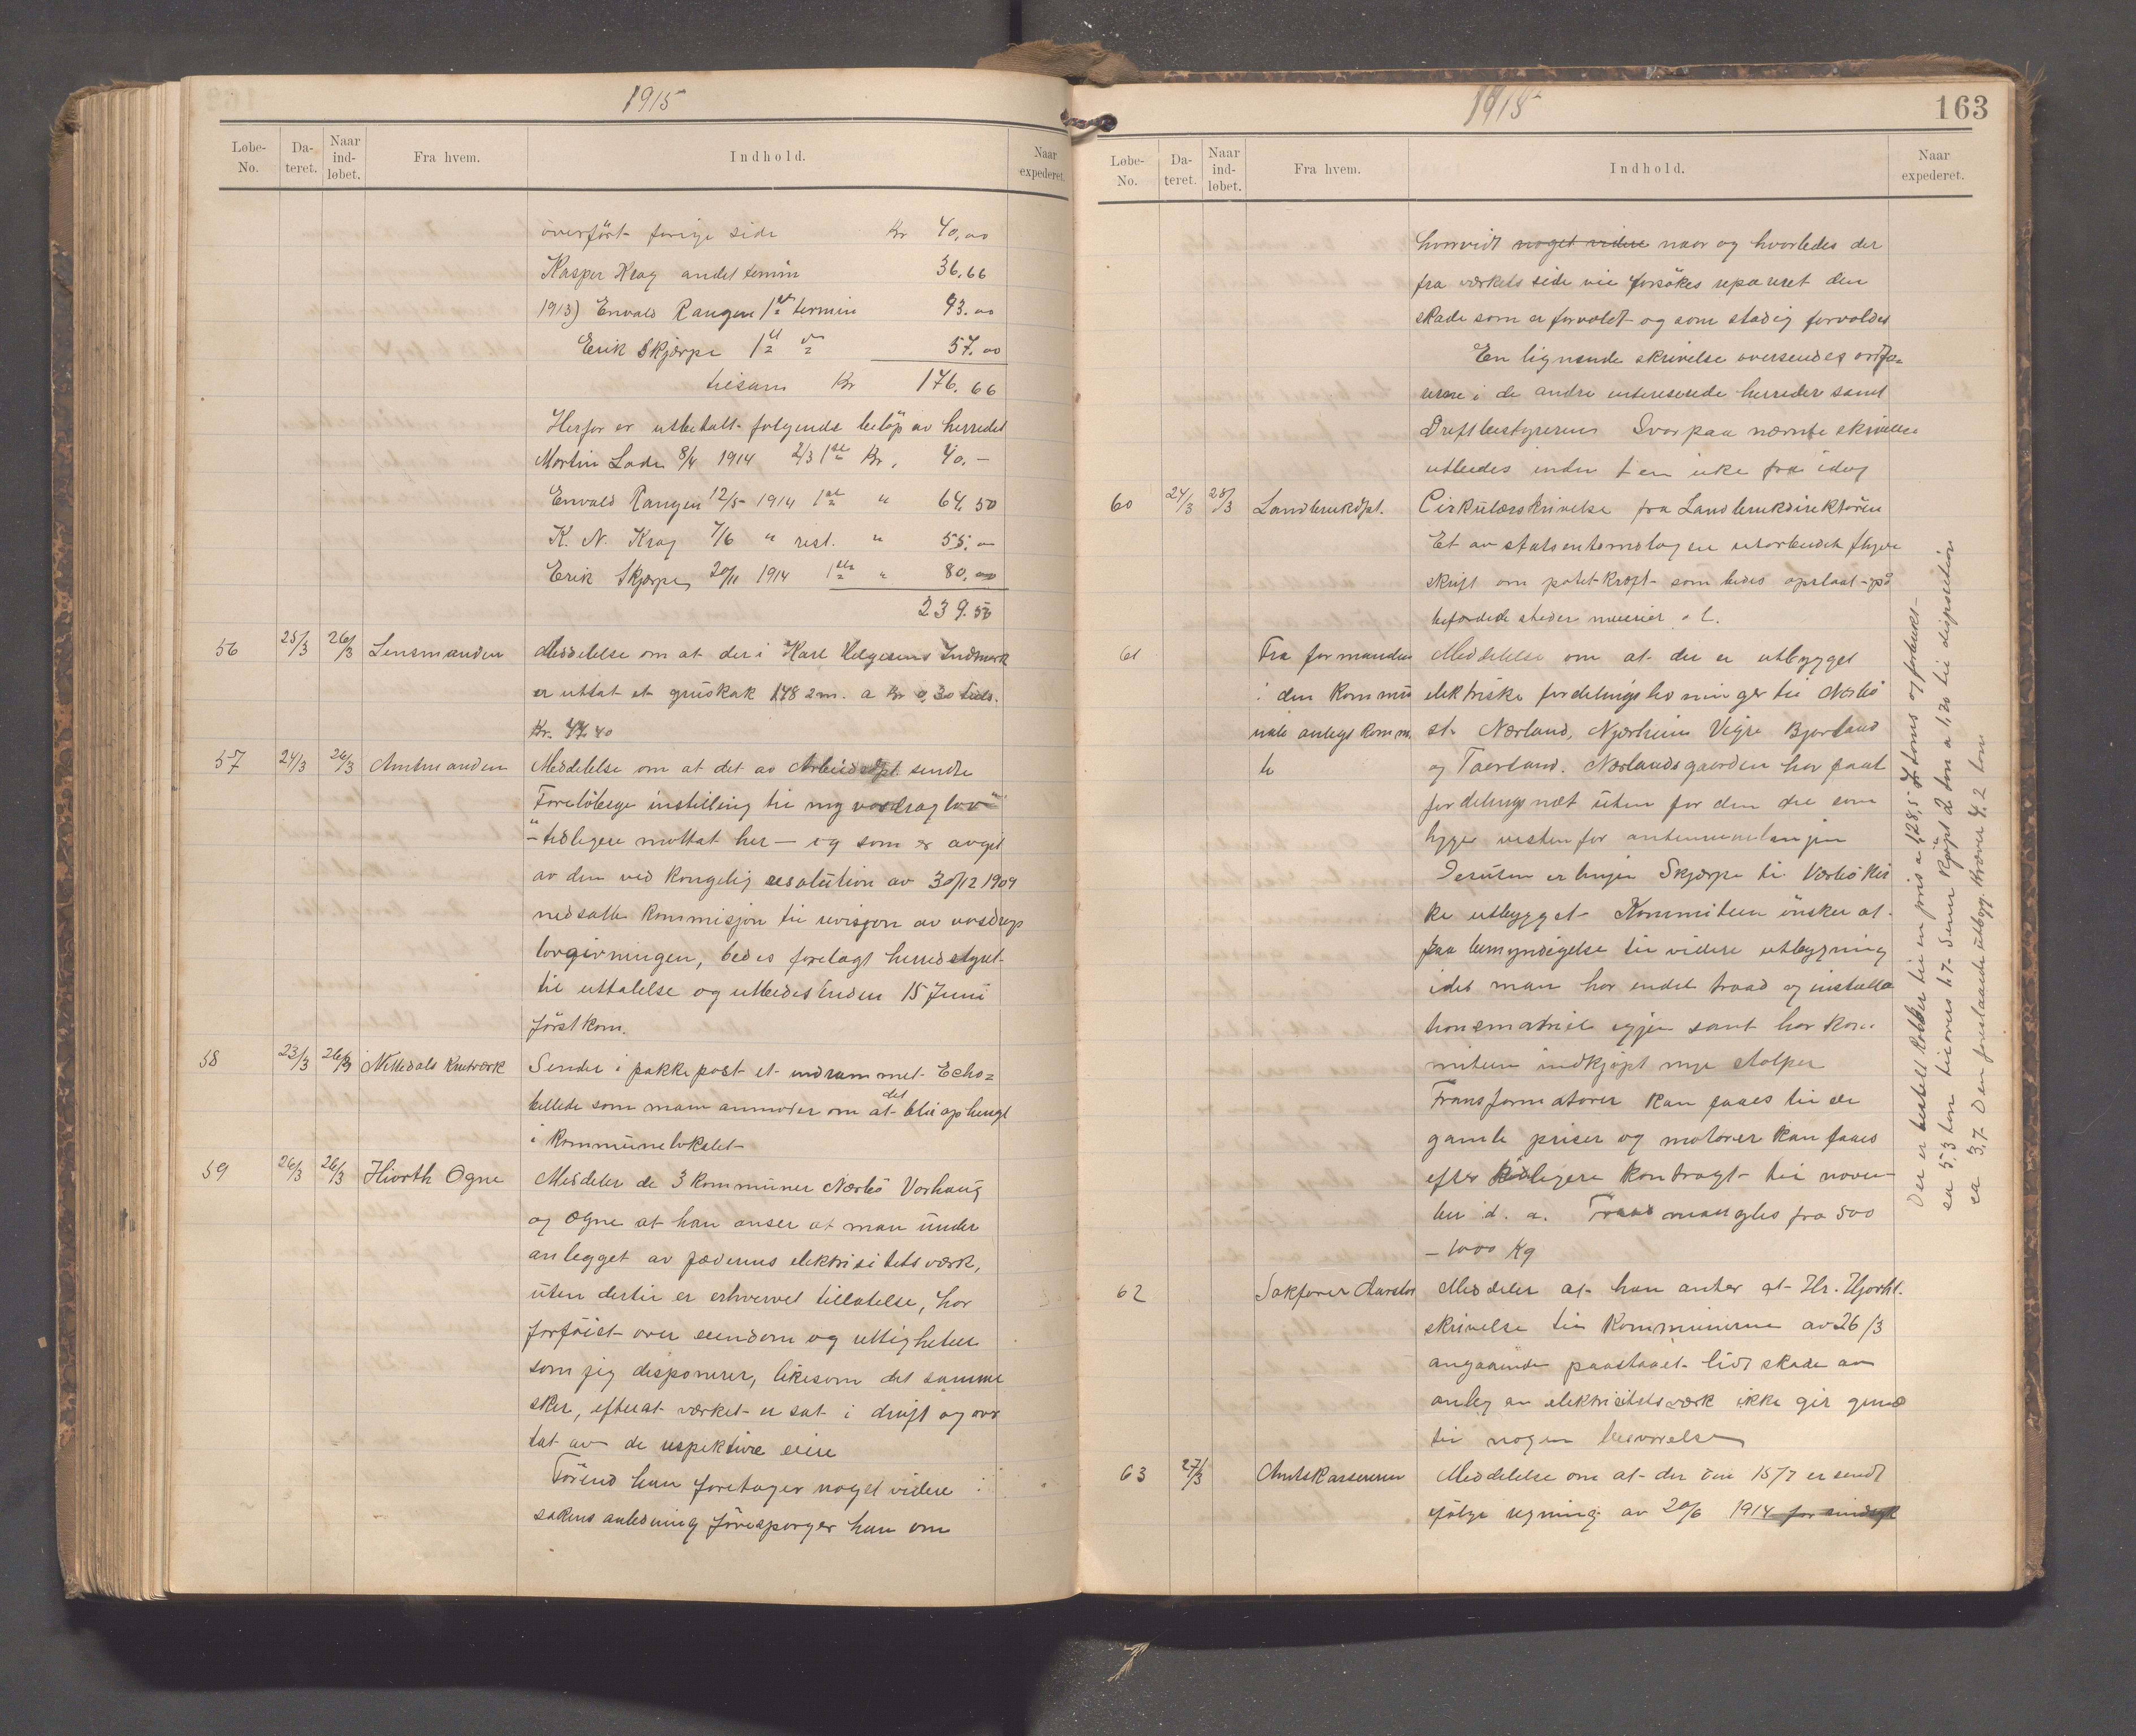 1915
Løbe-No. Da-teret. Naar ind-løbet. Fra hvem. Indhold. Naar expederet.
overført forige side Kr 40,00
Kasper Krag andet termin 36.66
1913) Envald Rangen 1ste termin 43.00
Erik Skjærpe 1st " 57.00
tilsam Kr 176.66
Herfor er utbetalt følgende beløp av herredet
Martin Lode 8/4 1914 2/3 1ste Kr. 40.-
Envald Rangen 12/5 1914 1ste " 64.50
K. N. Krag 7/6 " rest. " 55.00
Erik Skjærpe 20/11 1914 1ste " 80.00
239.50
56 25/3 26/3 Lensmanden Meddelelse om at der i Karl Helgesens Indmark
er uttat et gruskak 148 2m. a kr 0,30 tils.
Kr. 44.40
57 24/3 26/3 Amtmanden Meddelelse om at det av Arbeidsdpt. sendte
Foreløbige instilling til ny vasdraglov"
- tidligere mottat her - og som er avgit
av den ved kongelig resolution av 30/12 1909
nedsatte kommisjon til revisjon av vasdrags
lovgivningen, bedes forelagt herredstyret
til uttalelse og utbedes inden 15 Juni
førstkom.
58 23/3 26/3 Nittedals Krutværk Sender i pakkepost et indrammet Echo=
billede som man anmoder om at det blir ophengt
i kommunelokalet
59 26/3 26/3 Hiorth Ogne Meddeler de 3 kommuner Nærbø Varhaug
og Ogne at han anser at man under
anlegget av Jæderens elektrisitetsværk,
uten dertil er erhvervet tillatelse, har
forføiet over eiendom og rettigheter
som jeg disponerer, likesom det samme
sker, efterat værket er sat i drift og over
tat av de respektive eiere
Førend han foretager noget videre i
sakens anledning forespørger han om
1915
163
Løbe-No. Da-teret. Naar ind-løbet. Fra hvem. Indhold. Naar expederet.
hvorvidt noget videre naar og hvorledes der
fra værkets side vil forsøkes reparert den
skade som er forvoldt og som stadig forvoldes
En lignende skrivelse oversendes ordfø=
rerne i de andre interesserede herreder samt
Driftbestyreren Svar paa nævnte skrivelse
utbedes inden en uke fra idag
60 24/3 28/3 Landbruksdpt. Cirkulærskrivelse fra Landbruksdirektøren
Et av statsentomologen utarbeidet flyve
skrift om potetkræft som bedes opslaat på
befærdede steder meierier o. l.
61 Fra formanden Meddelelse om at der er utbygget
i den kommu elektriske fordelingsledninger til Nærbø
nale anlegs komm. st. Nærland, Njærheim Vigre Bjorland
og Taarland. Nærlandsgaarden har faat
fordelingsnæt uten for den del som
ligger vesten for
Desuten er linjen Skjærpe til Varhø kir
ke utbygget Kommiteen ønsker at
faa bemyndigelse til videre utbygning
idet man har endel traad og installa
tionsmatriel igjen samt har kom
miteen indkjøpt nye stolper
Transformatorer kan faaes til de
gamle priser og motorer kan faaes
efter tidligere kontragt til novem
ber d. a. Traad mangles fra 500
- 1000 Kg
Der er bestelt kobber til en pris a 128,5
ca 5,3 ton
ca 3,7 Den forestaaende utbyg. kræver 4,2 ton
62 Sakfører Aarstad Meddeler at han antar at Hr. Hjorth.
skrivelse til kommunerne av 26/3
angaaende paastaaet lidt skade av
anleg av elektrisitetsværk ikke gir grund
til nogen besvarelse
63 27/3 Amtskassereren Meddelelse om at der den 15/7 er sendt
ifølge regning av 20/6 1914